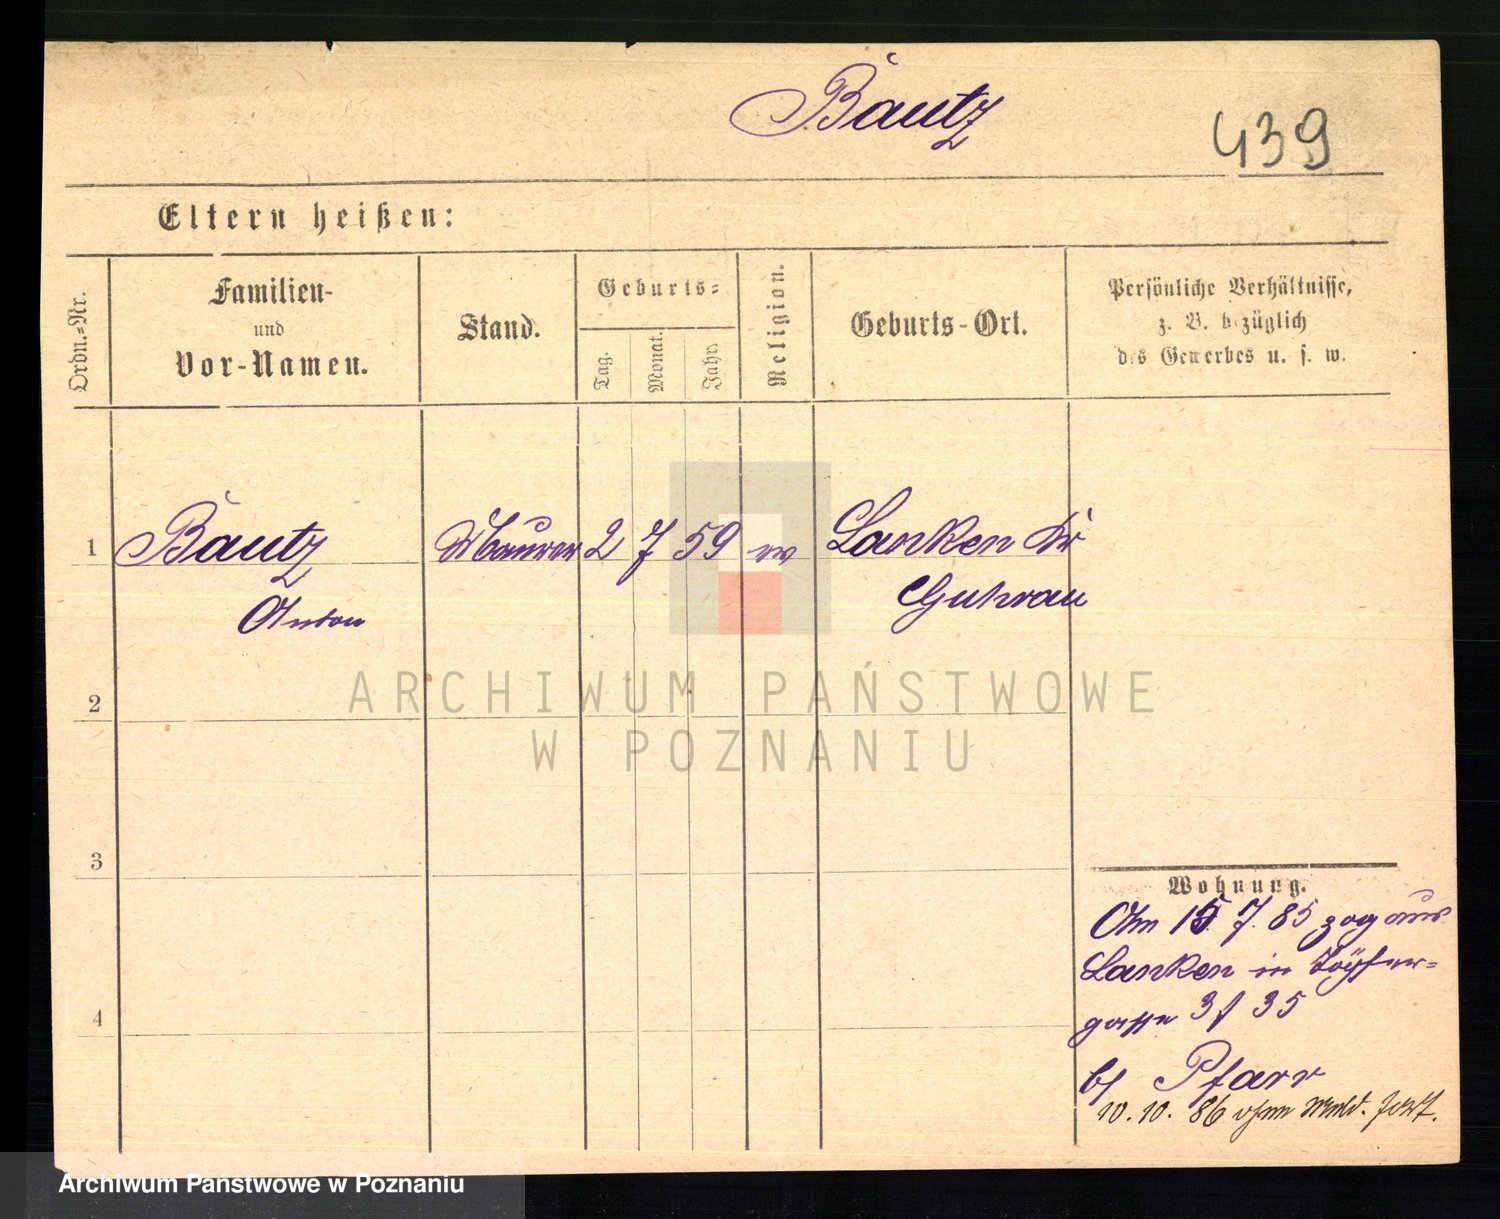 Bautz
439
Eltern heißen:
Ordn.=Nr.
Familien-
und
Vor-Namen.
Stand.
Geburts=
Tag.
Monat.
Jahr.
Religion.
Geburts-Ort.
Persönliche Verhältnisse,
z. B. bezüglich
des Gewerbes u. s. w.
1 Bautz Maurer 2 7 59 ev Lanken Kr
Anton Guhrau
ARCHIWUM PAŃSTWOWE
W POZNANIU
2
3
4
Wohnung.
Am 15. 7. 85 zog aus
Lanken in Töpfer=
gasse 3 35
b/ Pfarr
10. 10. 86 ohne Meld. fort.
Archiwum Państwowe w Poznaniu